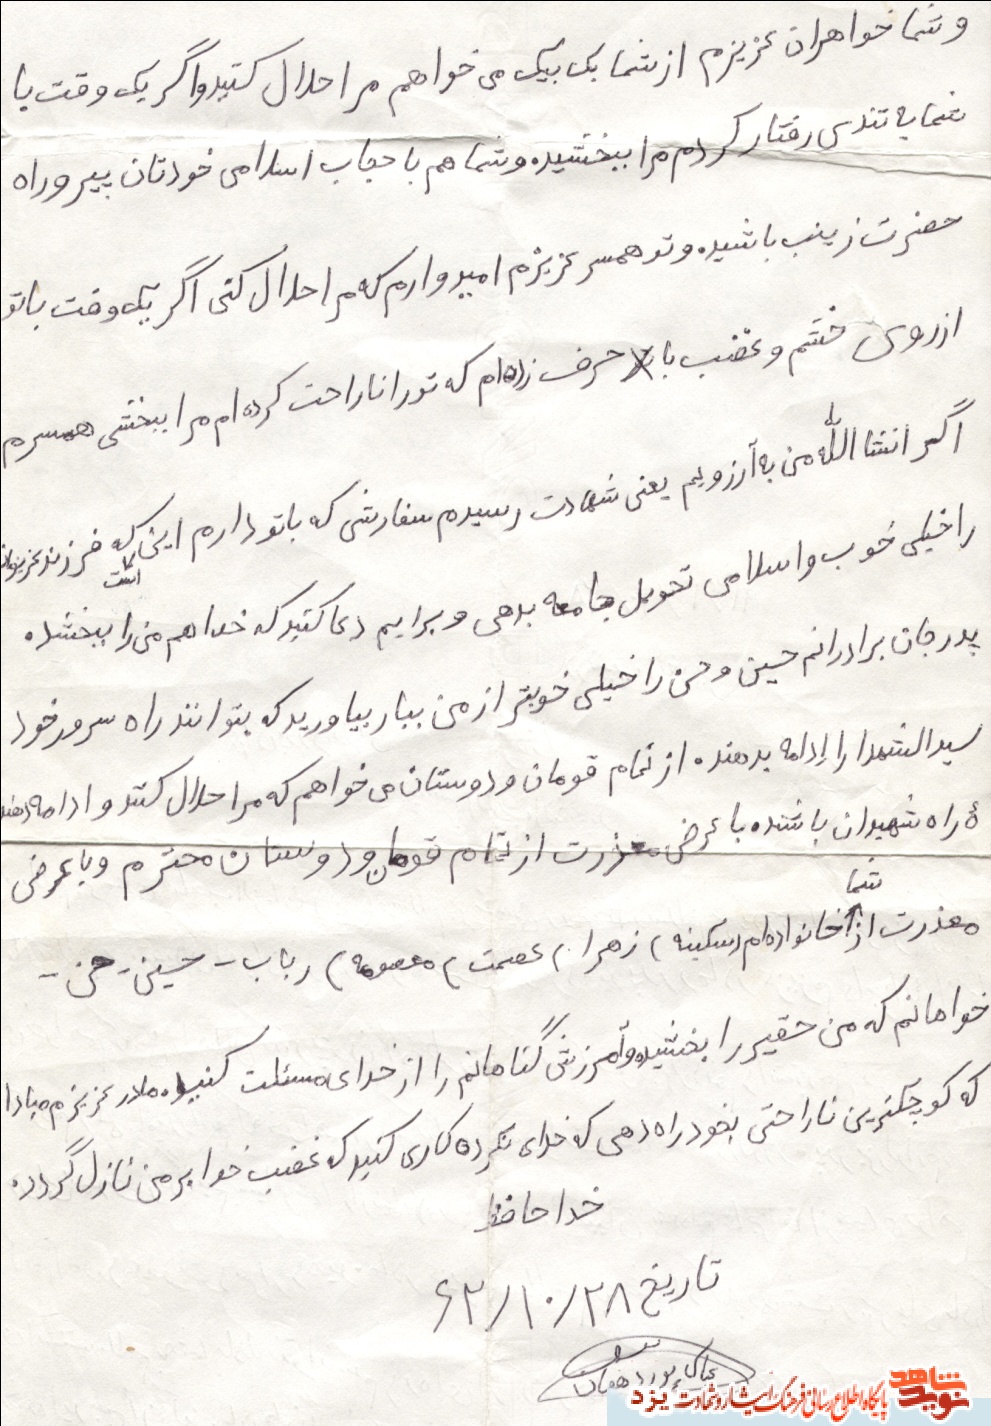 و شما خواهران عزیزم از شما یک بیک می خواهم مرا حلال کنید و اگر یک وقت با
شما به تندی رفتار کردم مرا ببخشید. و شما هم با حجاب اسلامی خودتان پیرو راه
حضرت زینب باشید. و تو همسر عزیزم امیدوارم که مرا حلال کنی اگر یک وقت با تو
از روی خشم و غضب با حرف زده ام که تو را ناراحت کرده ام مرا ببخشی همسرم
اگر انشا اللّه من به آرزویم یعنی شهادت رسیدم سفارشی که با تو دارم این است که فرزند عزیزمان
را خیلی خوب و اسلامی تحویل جامعه بدهی و برایم دعا کنید که خدا هم من را ببخشد.
پدر جان برادرانم حسین و حسن را خیلی خوبتر از من ببار بیاورید که بتوانند راه سرور خود
سیدالشهدا را ادامه بدهند. از تمام قومان و دوستان می خواهم که مرا حلال کنند و ادامه دهند
ۀ راه شهیدان باشند. با عرض معذرت از تمام قومان و دوستان محترم و با عرض
معذرت از شما خانواده ام (سکینه) زهرا) عصمت) معصومه) رباب - حسین - حسن -
خواهانم که من حقیر را بخشیده و آمرزش گناهانم را از خدای مسئلت کنید. مادر عزیزم مبادا
که کوچکترین ناراحتی بخود راه دهی که خدای نکرده کاری کنید که غضب خدا بر من نازل گردد.
خدا حافظ
تاریخ ۶۲/۱۰/۲۸
نوید شاهد
پایگاه اطلاع رسانی فرهنگ ایثار و شهادت یزد